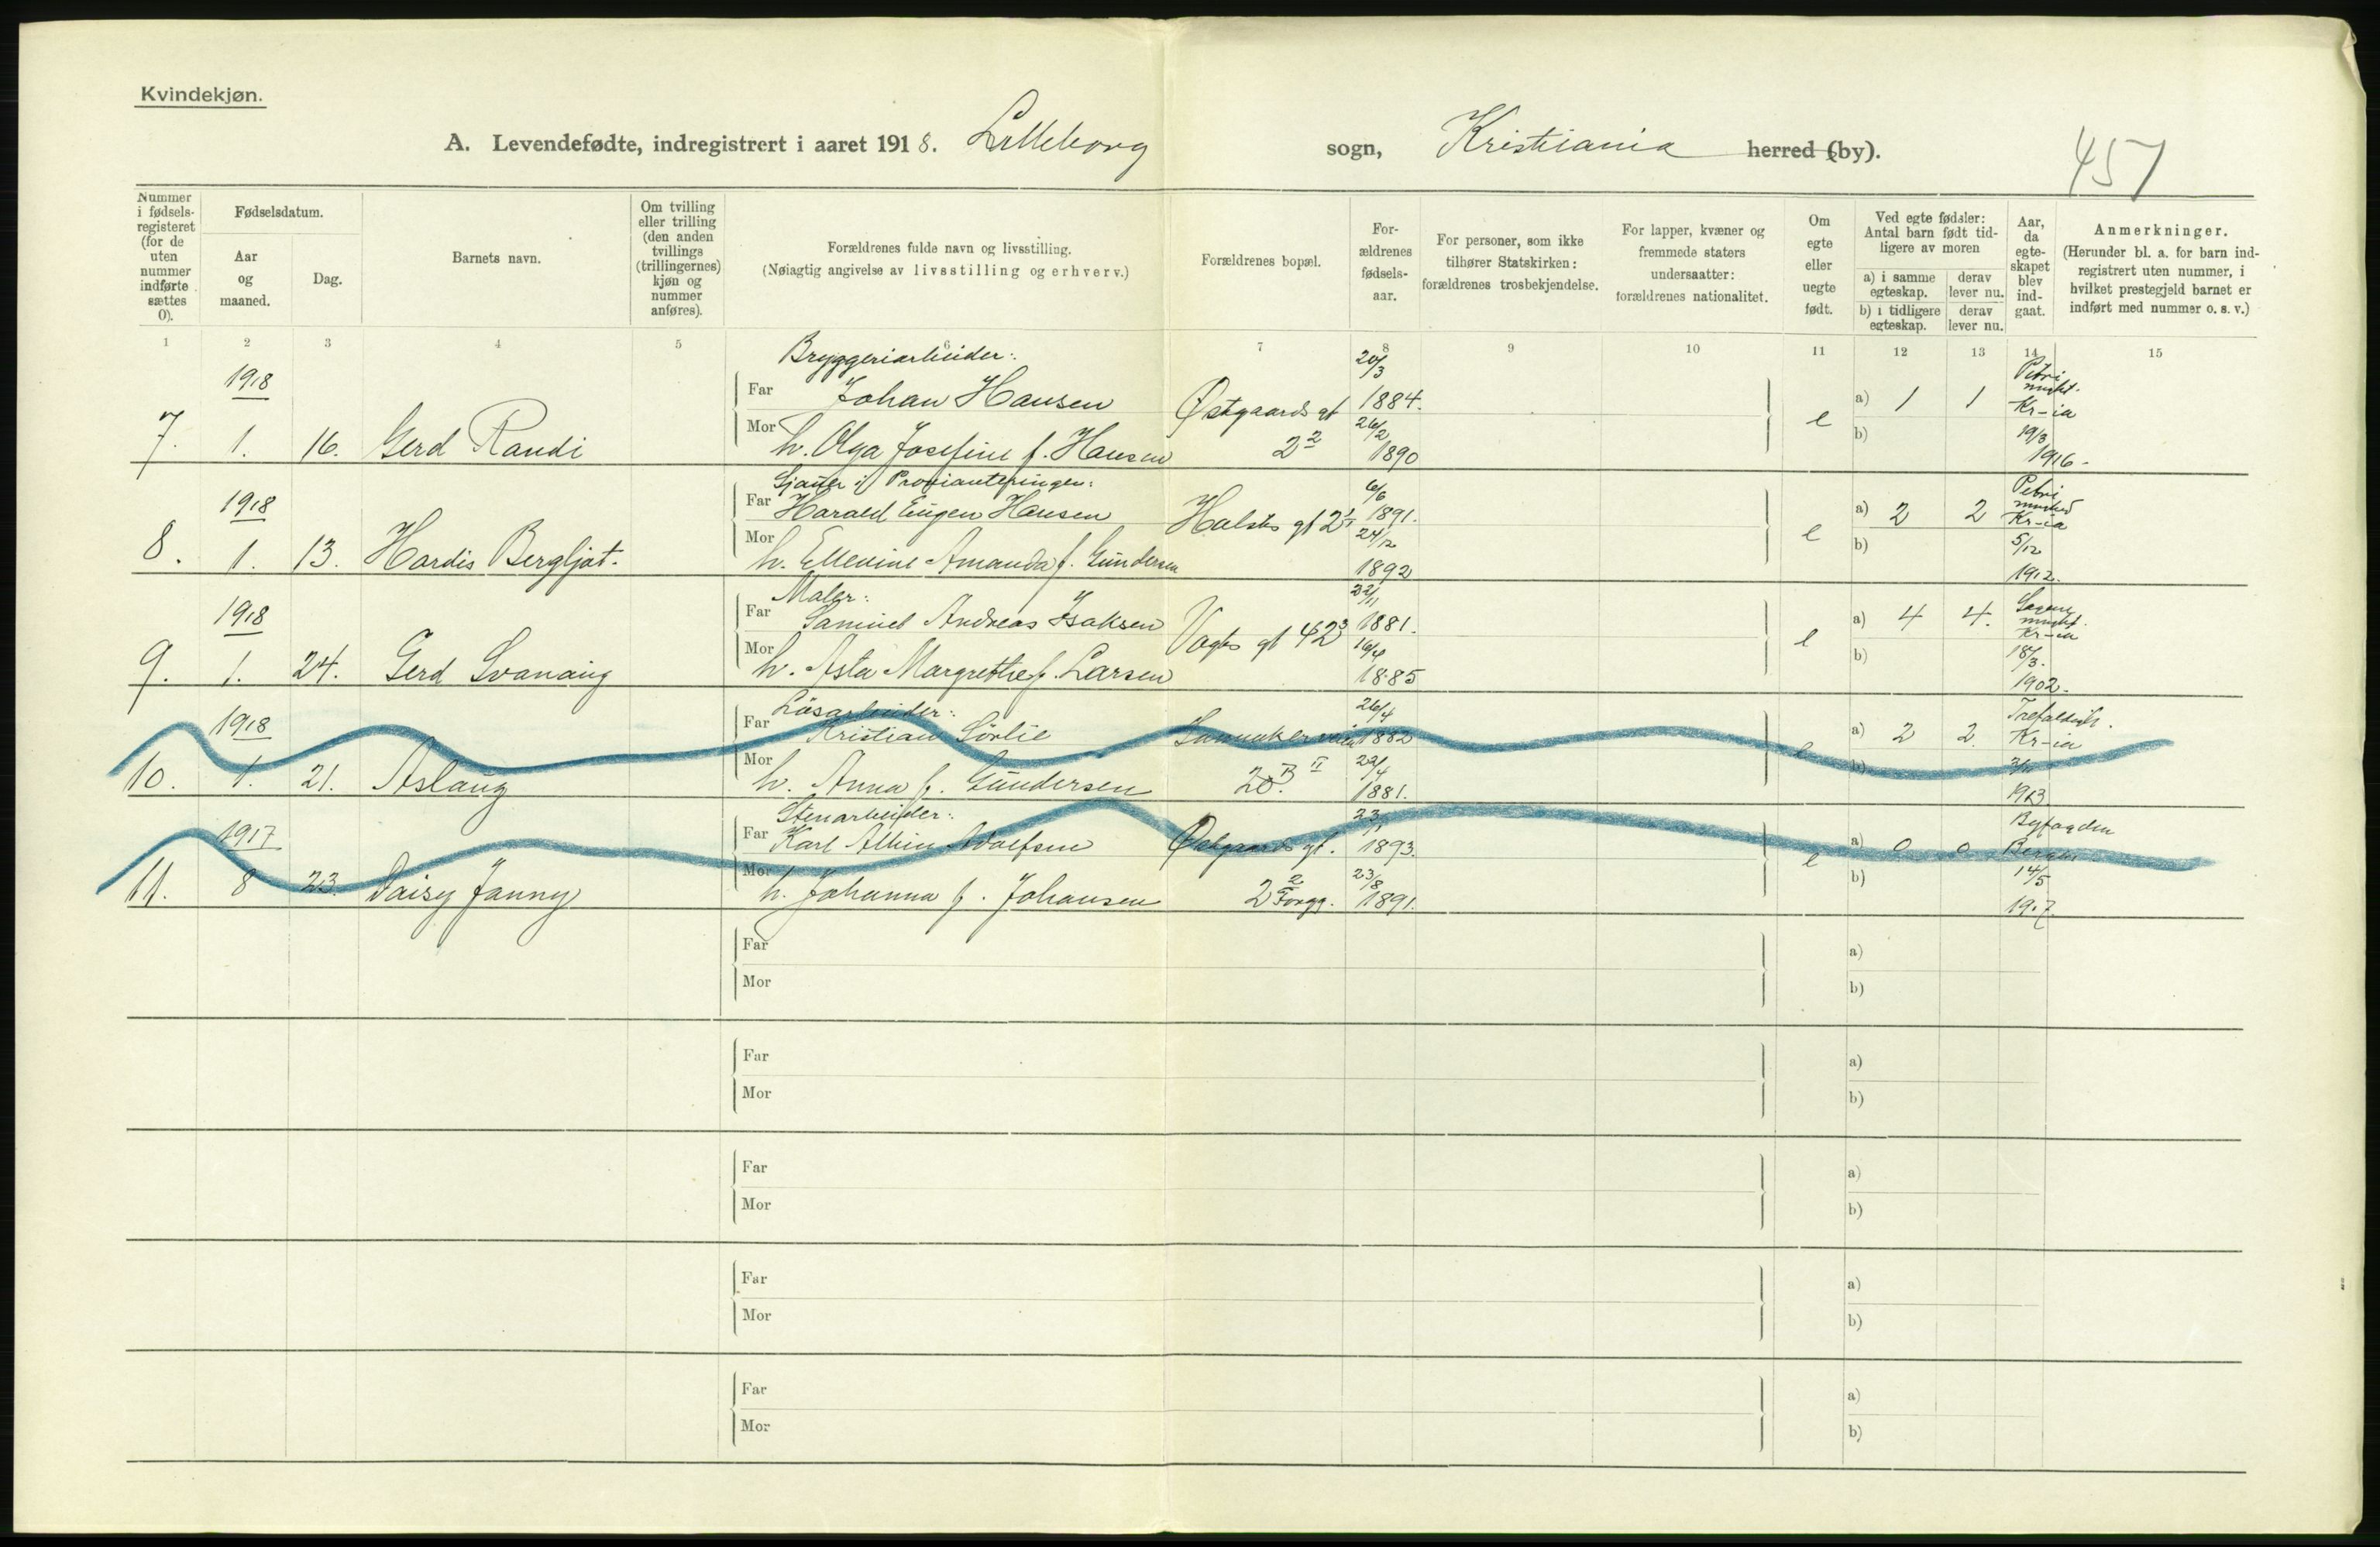 Kvindekjøn.
A. Levendefødte, indregistrert i aaret 1918. Lilleborg sogn, Kristiania herred (by).
457
Nummer i fødselsregisteret (for de uten nummer indførte sættes 0).
Fødselsdatum.
Aar og maaned.
Dag.
Barnets navn.
Om tvilling eller trilling (den anden tvillings (trillingernes) kjøn og nummer anføres).
Forældrenes fulde navn og livsstilling.
(Nøiagtig angivelse av livsstilling og erhverv.)
Forældrenes bopæl.
Forældrenes fødselsaar.
For personer, som ikke tilhører Statskirken: forældrenes trosbekjendelse.
For lapper, kvæner og fremmede staters undersaatter: forældrenes nationalitet.
Om egte eller uegte født.
Ved egte fødsler: Antal barn født tidligere av moren
a) i samme egteskap.
derav lever nu.
b) i tidligere egteskap.
derav lever nu.
Aar, da egteskapet blev indgaat.
Anmerkninger.
(Herunder bl. a. for barn indregistrert uten nummer, i hvilket prestegjeld barnet er indført med nummer o. s. v.)
1 2 3 4 5 6 7 8 9 10 11 12 13 14 15
Bryggeriarbeider:
1918
Far Johan Hansen
Østgaards gt 2 2
20/3 1884.
7. 1. 16. Gerd Randi
Mor h. Olga Josefine f. Hansen
26/2 1890
e a) 1 1
b)
Petri
Kr-ia
19/3 1916-
i Provianteringen:
1918
Far Harald Eugen Hansen
6/6 1891.
8. 1. 13. Hardis Bergljot.
Mor h. Ellevine Amanda f. Gundersen
24/12 1892
e a) 2 2
b)
Petri
Kr-ia
5/12
1912.
Maler:
1918
Far Samuel Andreas Isaksen
Vogts gt 42 3
22/11 1881.
9. 1. 24. Gerd Svanaug
Mor h. Asta Margrethe f. Larsen
16/4 1885
e a) 4 4.
b)
Kr-ia
18/3.
1902-
Løsarbeider:
1918
Far Kristian Sörlie
26/4 1882
10. 1. 21. Aslaug
Mor h. Anna f. Gundersen
29/4 1881.
e a) 2 2.
b)
Kr-ia
1913
Stenarbeider:
1917
Far Karl Albin Adolfsen
Østgaards gt. 2 2 Forgg.
23/1 1893.
11. 8 23. Daisy Janny
Mor h. Johanna f. Johansen
23/8 1891.
e a) 0 0
b)
Byfogden
Bergen
14/5
1917
Far a)
Mor b)
Far a)
Mor b)
Far a)
Mor b)
Far a)
Mor b)
Far a)
Mor b)